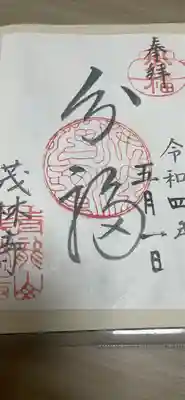 奉拝
令和四年
五月一日
分福
茂林寺
青龍山